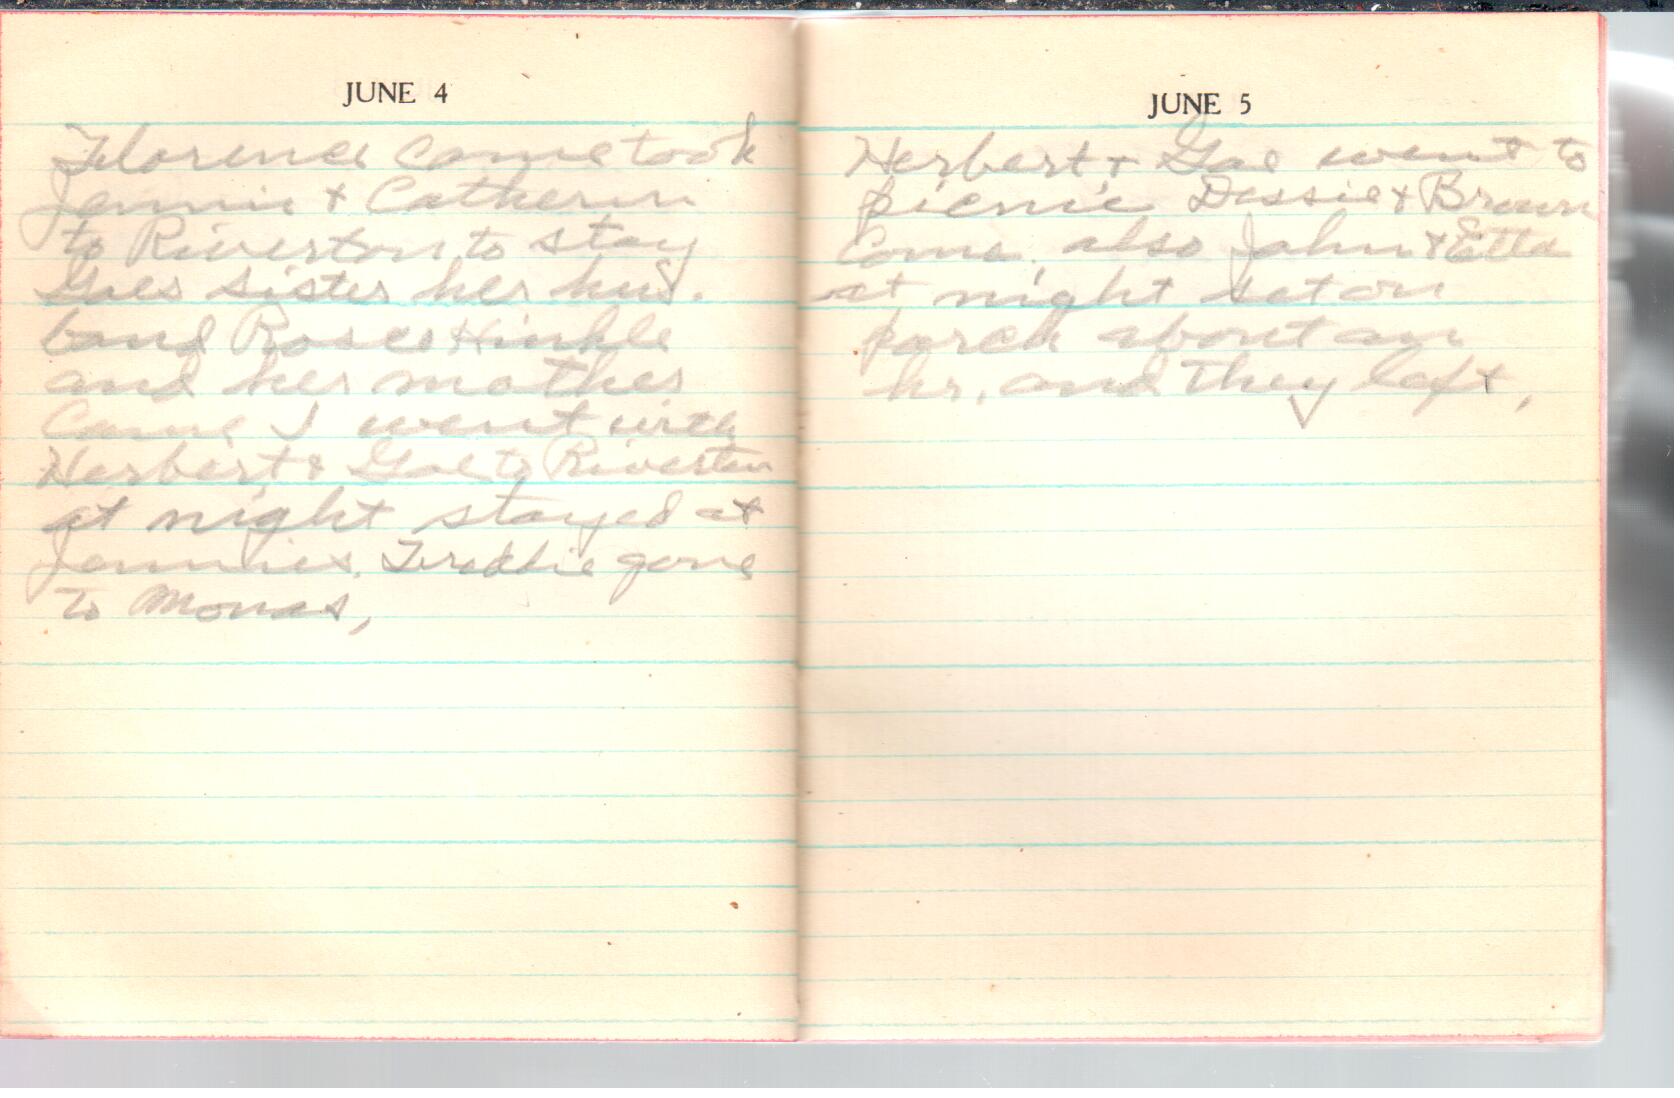 JUNE 4
Florence came took
Jennie & Catherin
to Riverton to stay
Gaes sister her hus.
band Roscoe Hinkle
and her mother
Came I went with
Herbert & Gae to Riverton
at night stayed at
Jennies. Freddie gone
to Monas,
JUNE 5
Herbert & Gae went to
picnic Dessie & Brown
Come. also John & Etta
at night set on
porch about an
hr, and they left,